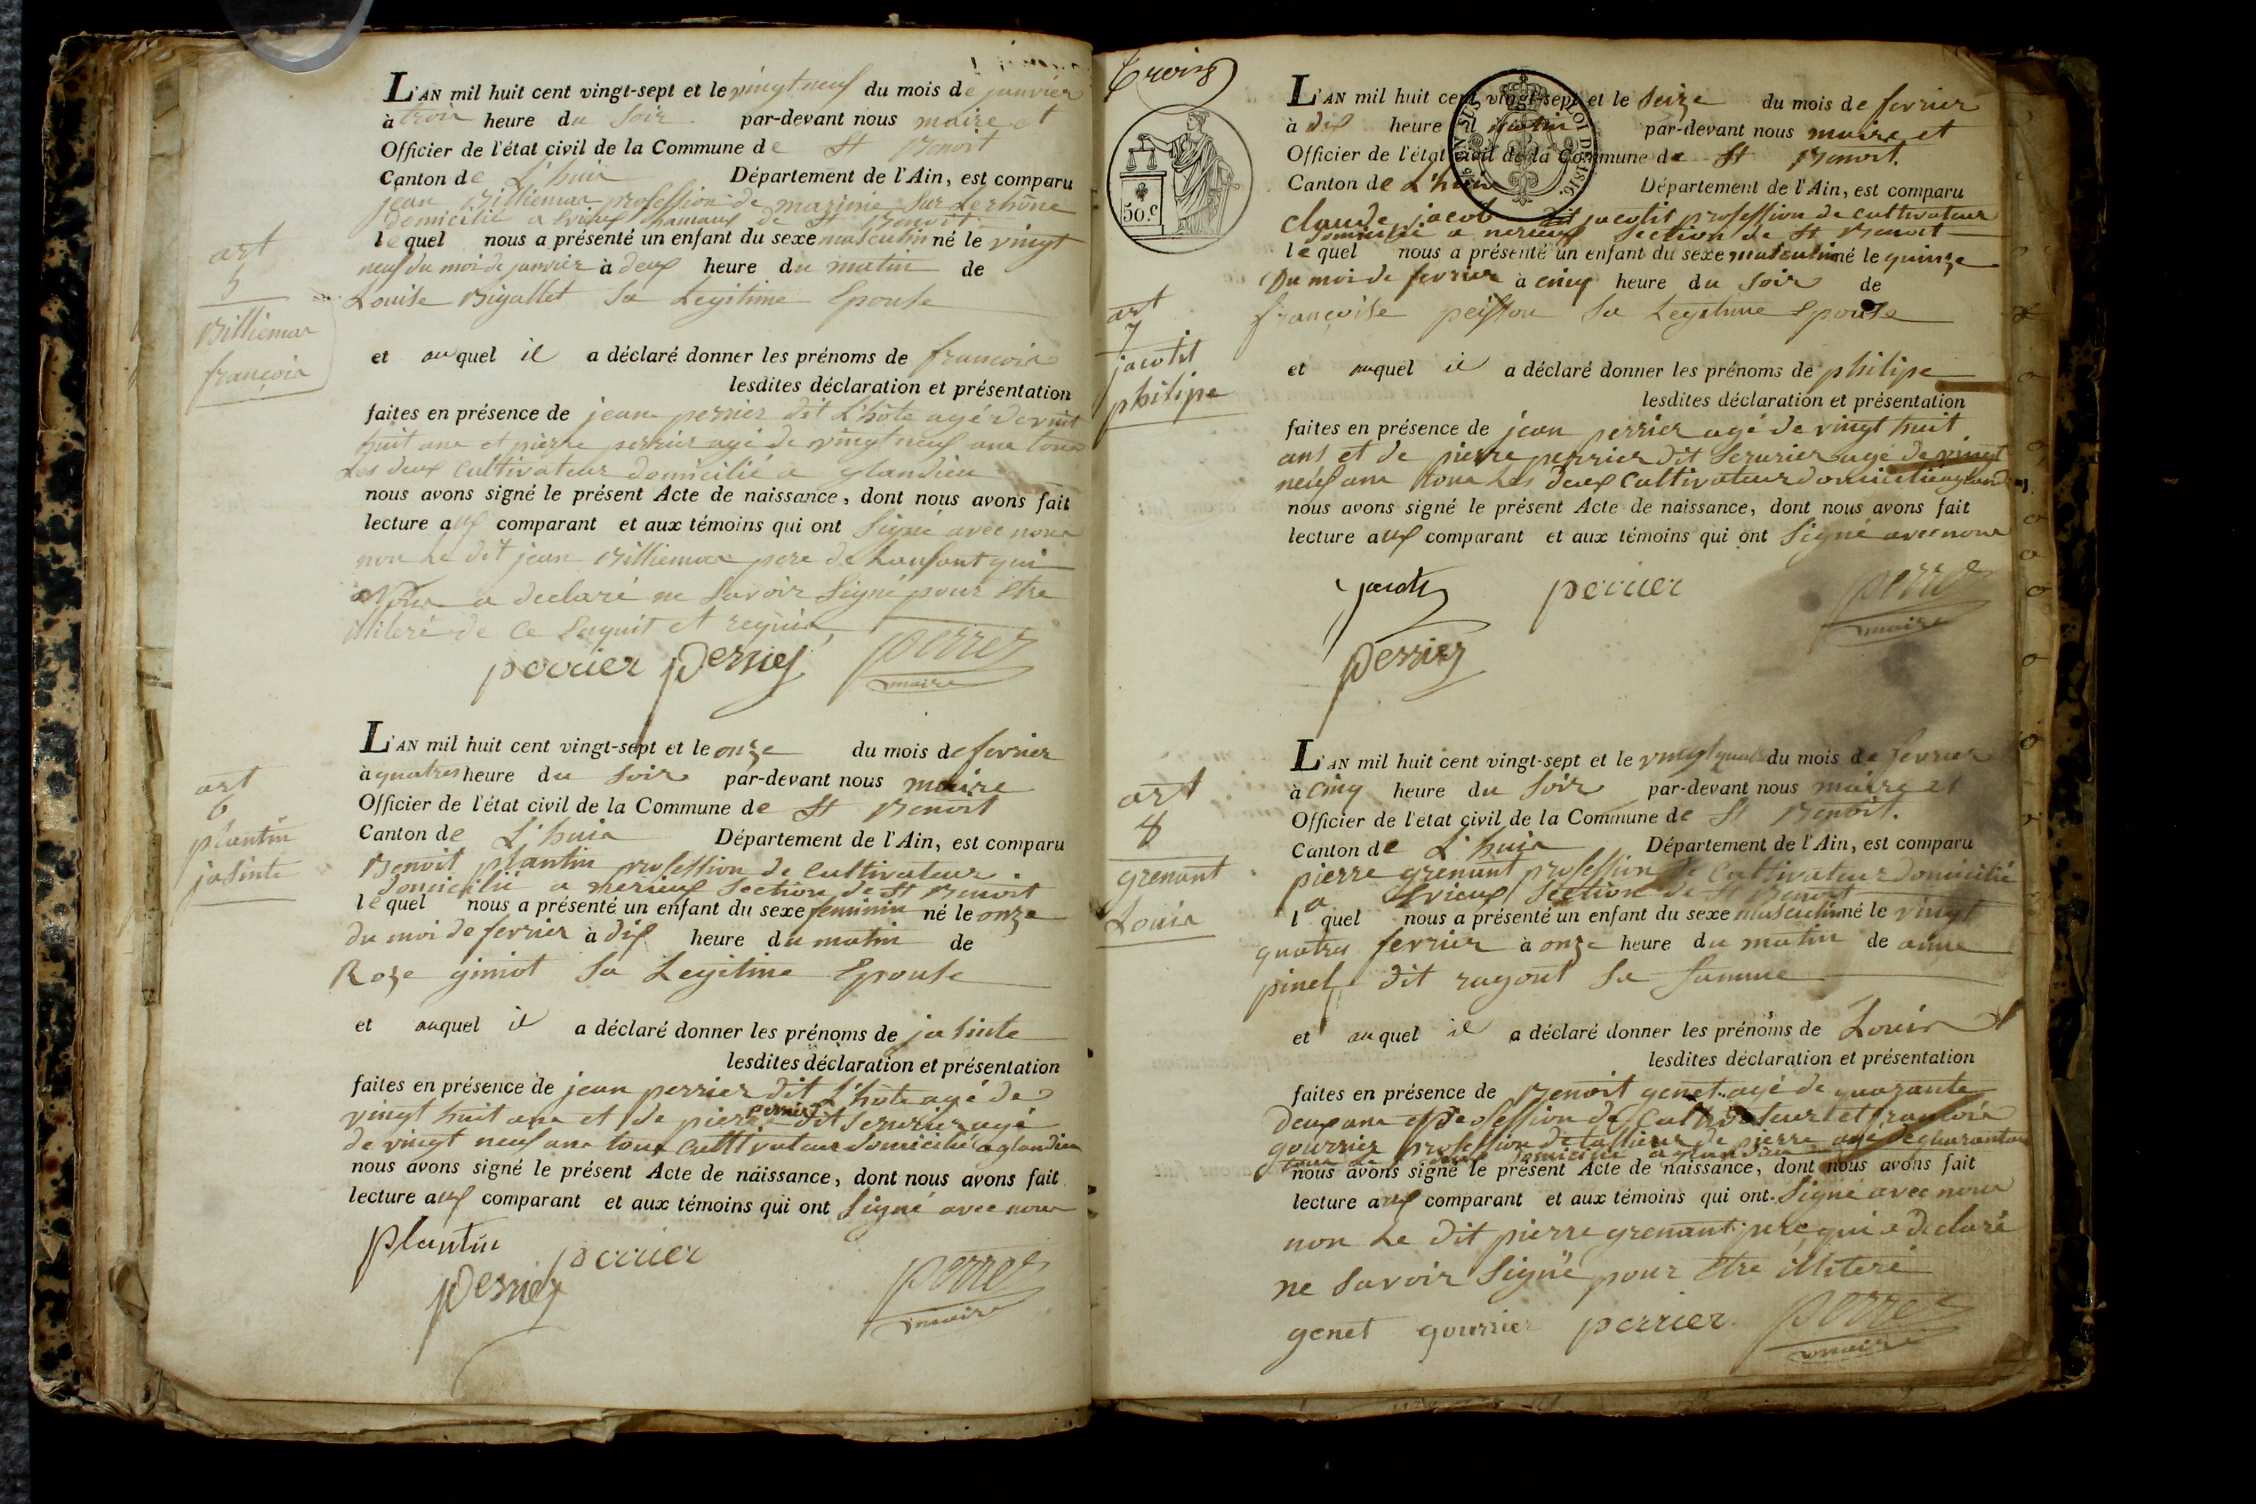 L'AN mil huit cent vingt-sept et le vingt neuf du mois de janvier
à trois heure du soir par-devant nous maire et
Officier de l'état civil de la Commune de St Benoit
Canton de L'huis Département de l'Ain, est comparu
jean Billiemar profession de marinié sur Le rhône
domicilié a Evieux hamaux de St Benoit
lequel nous a présenté un enfant du sexe masculin né le vingt
neuf du moi de janvier à deux heure du matin de
Louise Bigallet sa Legitime Epouse
art
5
Billiemar
françois
et auquel il a déclaré donner les prénoms de francois
lesdites déclaration et présentation
faites en présence de jean perrier dit L'hôte agé de vint
huit ans et pierre perrier agé de vingt neuf ans tous
Les deux Cultivateur domicilié a glandieu
nous avons signé le présent Acte de naissance, dont nous avons fait
lecture aux comparant et aux témoins qui ont Signé avec nous
non Le dit jean Billiemar pere de Lansant qui
a declaré ne Savoir Signé pour Etre
illiteré de Ce Enquit et requis
perrier perrier perret
maire
L'AN mil huit cent vingt-sept et le onze du mois de fevrier
à quatres heure du Soir par-devant nous maire
Officier de l'état civil de la Commune de St Benoit
Canton de L'huis Département de l'Ain, est comparu
Benoit plantin profession de Cultivateur
domicilié a merieux Section de St Benoit
lequel nous a présenté un enfant du sexe feminin né le onze
du moi de fevrier à dix heure du matin de
Roze giniot Sa Legitime Epouse
art
6
plantin
jasinte
et auquel il a déclaré donner les prénoms de jasinte
lesdites déclaration et présentation
faites en présence de jean perrier dit L'hôte agé de
vingt huit ans et de pierre perrier dit Serurier agé
de vingt neuf ans tous Cultivateur domicilié a glandieu
nous avons signé le présent Acte de naissance, dont nous avons fait
lecture aux comparant et aux témoins qui ont Signé avec nous
Plantin perrier
perrier perret
maire
Trois
50.c
LOI DE 1816.
L'AN mil huit cent vingt-sept et le Seize du mois de fevrier
à dix heure du matin par-devant nous maire et
Officier de l'état civil de la Commune de St Benoit.
Canton de L'huis Département de l'Ain, est comparu
Claude jacob dit jacotit profession de Cultivateur
domicilié a merieux Section de St Benoit
lequel nous a présenté un enfant du sexe masculin né le quinze
Du moi de fevrier à cinq heure du Soir de
françoise peisson Sa Legitime Epouse
art
7
jacotit
philipe
et auquel il a déclaré donner les prénoms de philipe
lesdites déclaration et présentation
faites en présence de jean perrier agé de vingt huit
ans et de pierre perrier dit Serurier agé de vingt
neuf ans tous Les deux Cultivateur domicilié a glandieu
nous avons signé le présent Acte de naissance, dont nous avons fait
lecture aux comparant et aux témoins qui ont Signé avec nous
perrier perret
maire
perrier
L'AN mil huit cent vingt-sept et le vingt quatre du mois de fevrier
à cinq heure du Soir par-devant nous maire et
Officier de l'état civil de la Commune de St Benoit.
Canton de L'huis Département de l'Ain, est comparu
pierre grenant profession de Cultivateur domicilié
a Evieux Section de St Benoit
l quel nous a présenté un enfant du sexe masculin né le vingt
quatres fevrier à onze heure du matin de anne
pinel dit ragout Sa famme
art
8
grenant
Louis
et auquel il a déclaré donner les prénoms de Louis
lesdites déclaration et présentation
faites en présence de Benoit genet agé de quarante
deux ans et profession de Cultivateur et françois
gourrier profession de tallieur de pierre agé de quarante
tous les deux domicilié a glandieu
nous avons signé le présent Acte de naissance, dont nous avons fait
lecture aux comparant et aux témoins qui ont Signé avec nous
non Le dit pierre grenant pere qui a declaré
ne Savoir Signé pour Etre illiteré
genet gourrier perrier perret
maire